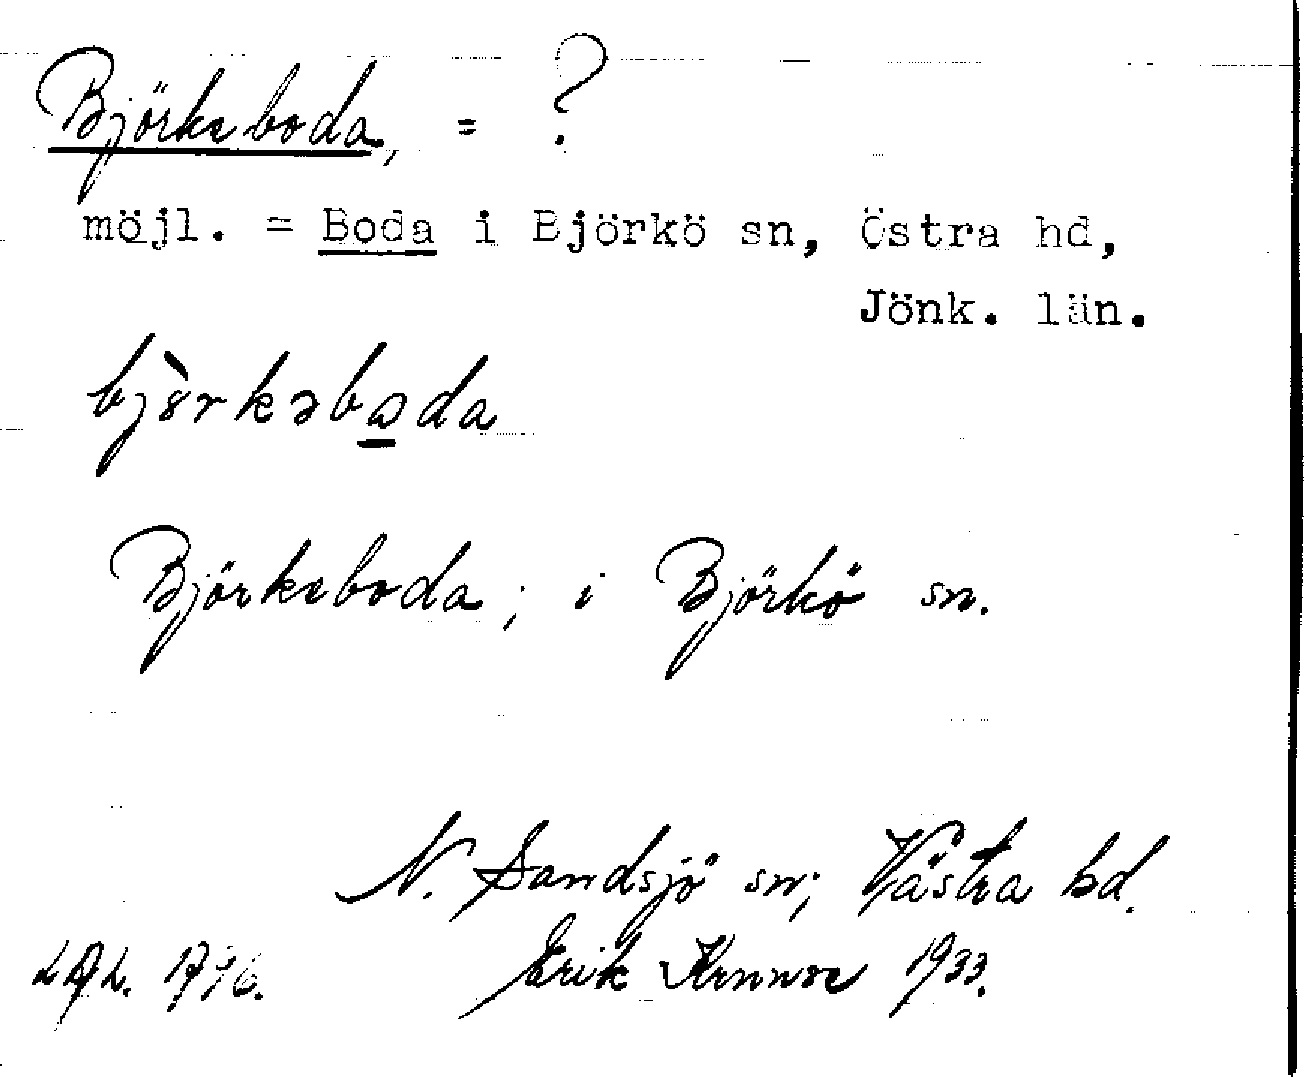 Björkeboda, = ?
möjl. = Boda i Björkö sn, Östra hd,
Jönk. län.
bjòrkəboda
Björkeboda; i Björkö sn.
N. Sandsjö sn; Västra hd.
Erik 1933.
1776.